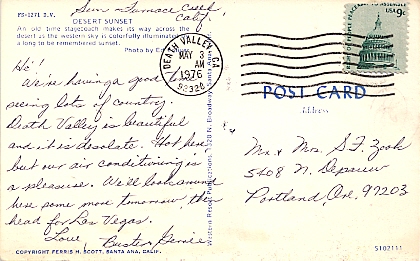 Sun Furnace Creek
Calif.
FS-1271 D.V.
DESERT SUNSET
An old time stagecoach makes its way across the
desert as the western sky is colorfully illuminated
a long to be remembered sunset.
Photo by
Hi!
We're having a good
seeing lots of country.
Death Valley is beautiful
and it is desolate. Hot here
but our air conditioning is
a pleasure. We'll look around
here some more tomorrow, then
head for Las Vegas.
Love,
Buster
COPYRIGHT FERRIS H. SCOTT, SANTA ANA, CALIF.
Western Resort Publications, 1320 N. Broadway
DEATH VALLEY, CA
MAY 3
AM
1976
92328
USA 9c
POST CARD
Address
Mr. & Mrs. S.F. Zook
5408 N. Depauw
Portland Ore. 97203
S102111